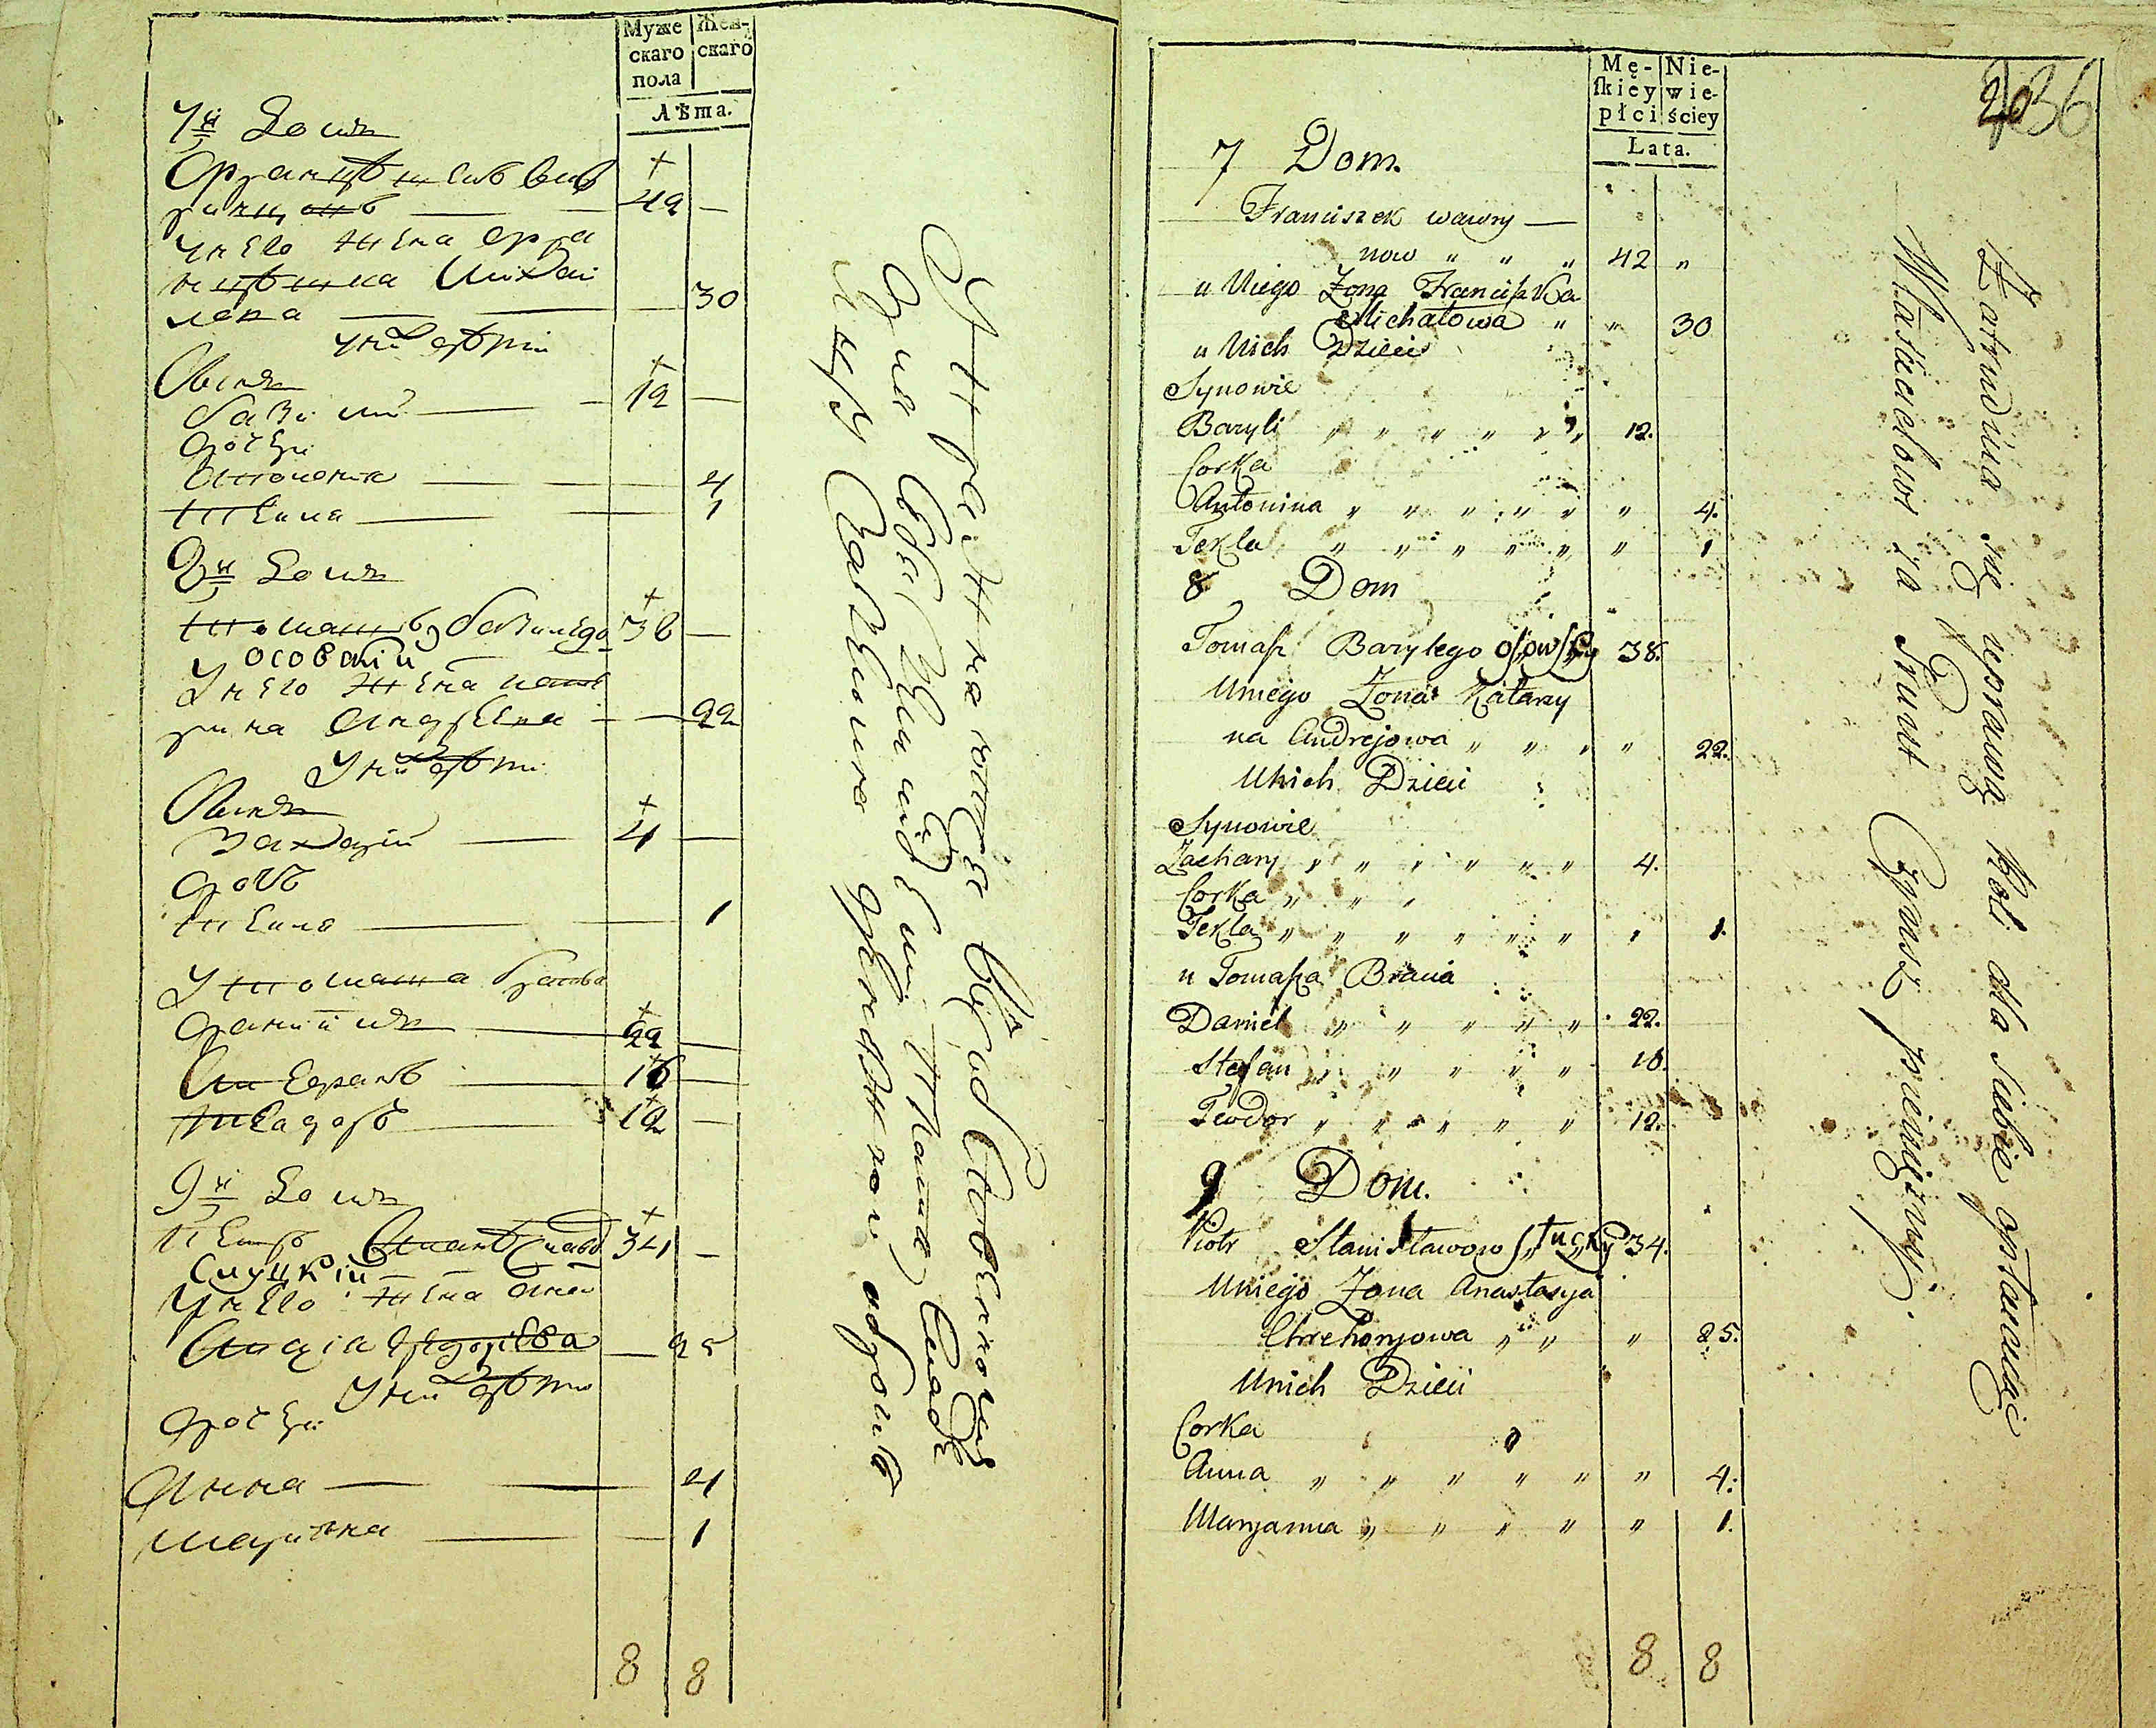 Муже
скаго
пола
Жен-
скаго
Лѣта.
7й Домъ
Францѣшекъ Вав
ринцовъ — 42 —
У него жена Фра
нцѣшка Михай
лова — 30
У ниⷯ дѣти
Сынъ
Базилій — 12 —
дочери
Антонина — 4
Текля — 1
8й Домъ
Томашъ Базилего 38 —
Осовскій
У него жена Кате
рина Андреева — 22
У ниⷯ дѣти
Сынъ
Захарій — 4 —
дочь
Текля — 1
У Томаша братья
Даніилъ — 22 —
Стефанъ — 16 —
Теодоръ — 12 —
9й Домъ
Петръ Станиславо 34 —
Слуцкій
У него жена Анас
тасія Григорьева — 25
У ниⷯ дѣти
дочери
Анна — 4
Маріяна — 1
8 8
Упражняются въ
для себя земледелием платя
за землю денежной
Mę-
skiey
płci
Nie-
wie-
ściey
Lata.
36
7 Dom.
Franciszek wawry —
now " " " 42 "
u Niego Żona Franciszka
Michałowa " " 30
u Nich Dzieci
Synowie
Bazyli " " " " " " 12.
Corka
Antonina " " " " " " 4.
Tekla " " " " " " 1
8 Dom
Tomasz Bazylego Osowsky 38.
Uniego Żona Katarzy
na Andrejowa " " " " 22.
Unich Dzieci
Synowie
Zachary " " " " " " 4.
Corka " " "
Tekla " " " " " " " 1.
u Tomasza Bracia
Daniel " " " " " 22.
Stefan " " " " " 16.
Teodor " " " " " 12.
9 Dom.
Piotr Stanisławow Słucky 34.
Uniego Żona Anastasya
Chrehoryowa " " " 25.
Unich Dzieci
Corka
Anna " " " " " " 4.
Maryanna " " " " " 1.
8 8
Zatrudnia się uprawą Roli dla siebie opłacaiąc
Właścicielowi za Grunt Czynsz pieniężny.